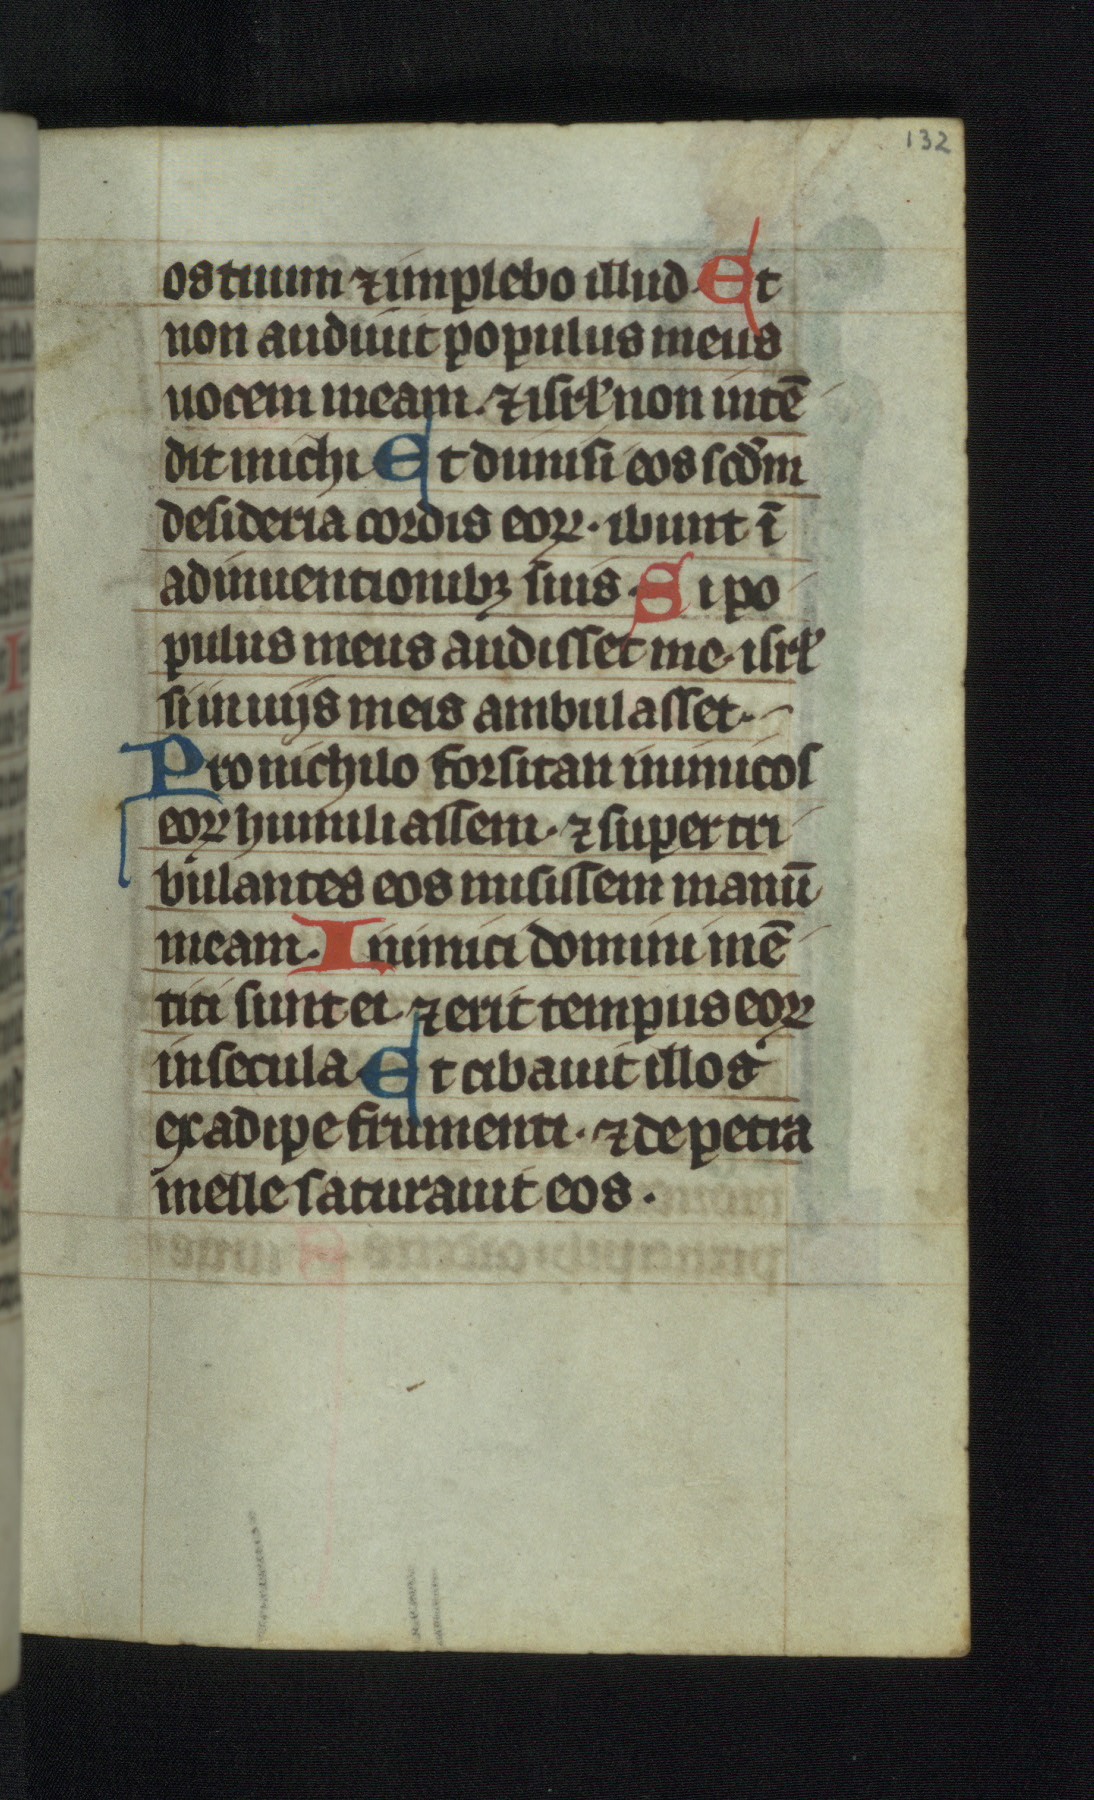 132
os tuum ⁊ implebo illud. Et
non audiuit populus meus
uocem meam. ⁊ isrl̓ non intē
dit michi Et dimisi eos scd̓m
desideria cordis eoꝝ. ibunt ī
adinuentionibꝫ suis. Si po
pulus meus audisset me. isrl̓
si in uijs meis ambulasset.
Pro nichilo forsitan inimicos
eoꝝ humiliassem. ⁊ super tri
bulantes eos misissem manū
meam. Inimici domini mē
titi sunt ei. ⁊ erit tempus eoꝝ
in secula Et cibauit illos
ex adipe frumenti. ⁊ de petra
melle saturauit eos.